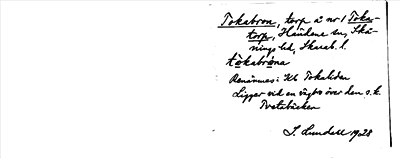 Tokabron, torp å nr 1 Toka-
torp, Händene sn, Skå-
nings hd, Skarab. l.
tòkabróna
Benämnes: Kb Tokaliden
Ligger vid en vägbro över den s. k.
Tvetabäcken
S. Lundell 1928